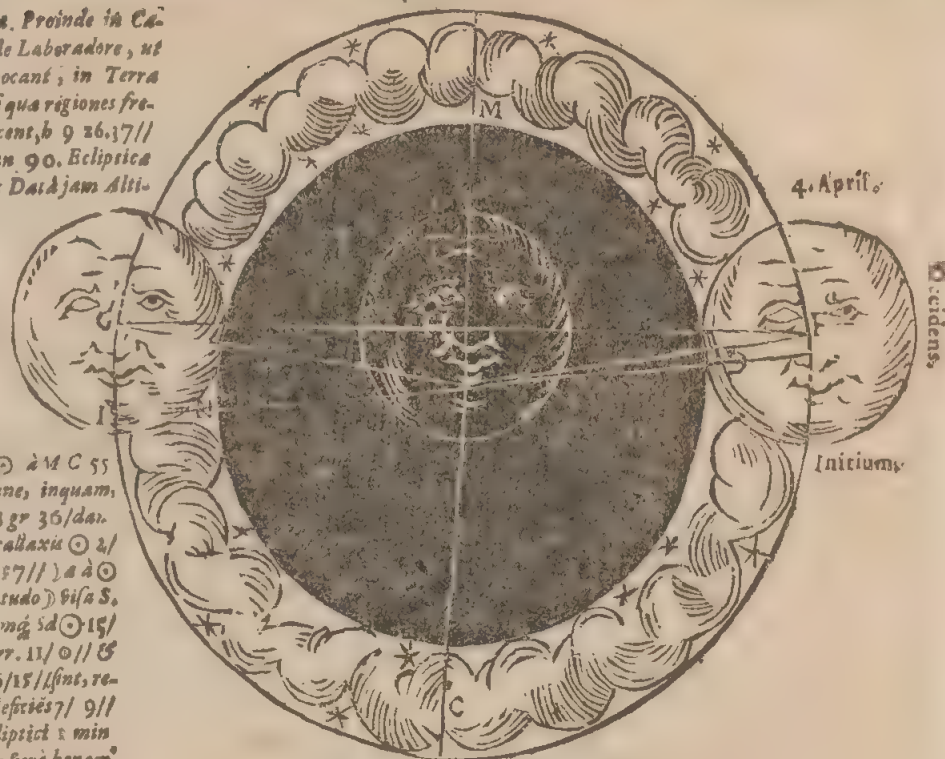 a. Proinde in Ca-
le Laboradore, ut
ocant; in Terra
qua regiones fre-
cent, h 9 26.37//
90. Ecliptica
Datâ jam Alti-
M
4. April.
cidens,
I
N
Initium,
☉ à M C 55
ne, inquam,
gr 36/dan.
rallaxis ☉ 2/
57// ☽ a à ☉
tudo ☽ visa S.
☉ 15/
rr. 11/ 0// &
6/15// sint, re-
efitiēs 7/ 9//
C
min